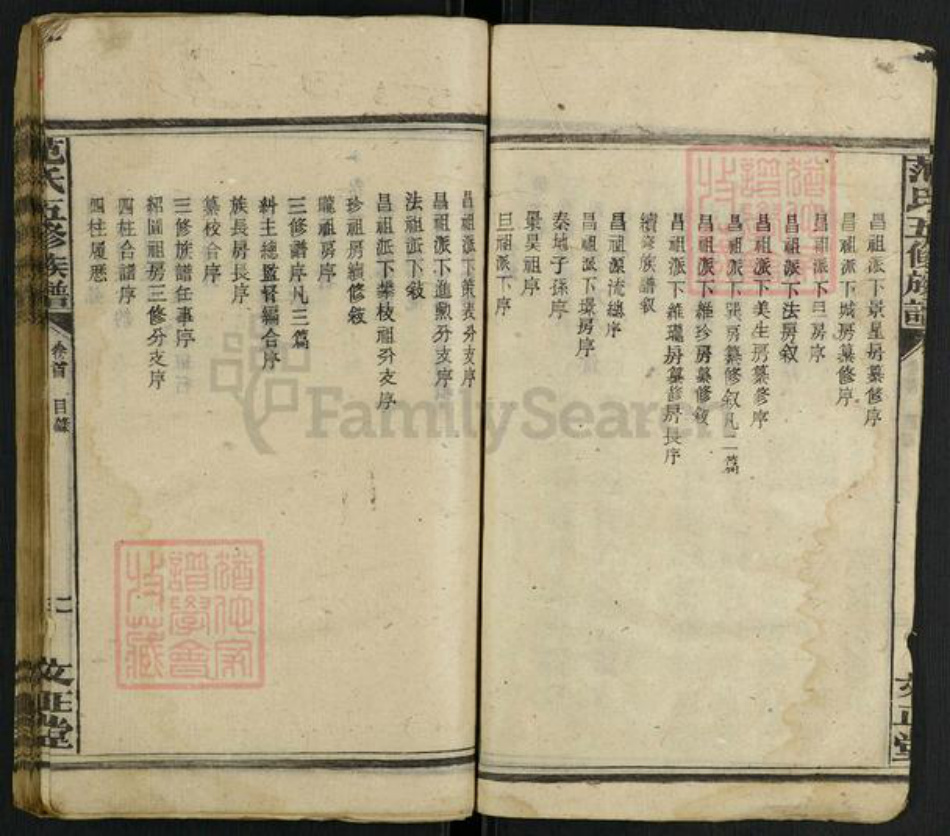 范氏五修族譜
文正堂
昌祖派下景星房纂修序
昌祖派下城房纂修序
昌祖派下曰房序
昌祖派下法房叙
昌祖派下美生房纂修序
昌祖派下巽房纂修叙凡二篇
昌祖派下維珍房纂修叙
昌祖派下維瓏房纂修房長序
續修族譜叙
昌祖源流總序
昌祖派下璟房序
秦地子孫序
杲昊祖序
旦祖派下序
昌祖派下策表分支序
昌祖派下進勳分支序
法祖派下敘
昌祖派下攀枝祖分支序
珍祖房續修敘
瓏祖房序
三修譜序凡三篇
糾主總監督編合序
族長房長序
纂校合序
三修族譜任事序
紹圖祖房三修分支序
四柱合譜序
四柱履歷
范氏五修族譜
卷首 目錄
文正堂
譜學會
收藏
FamilySearch